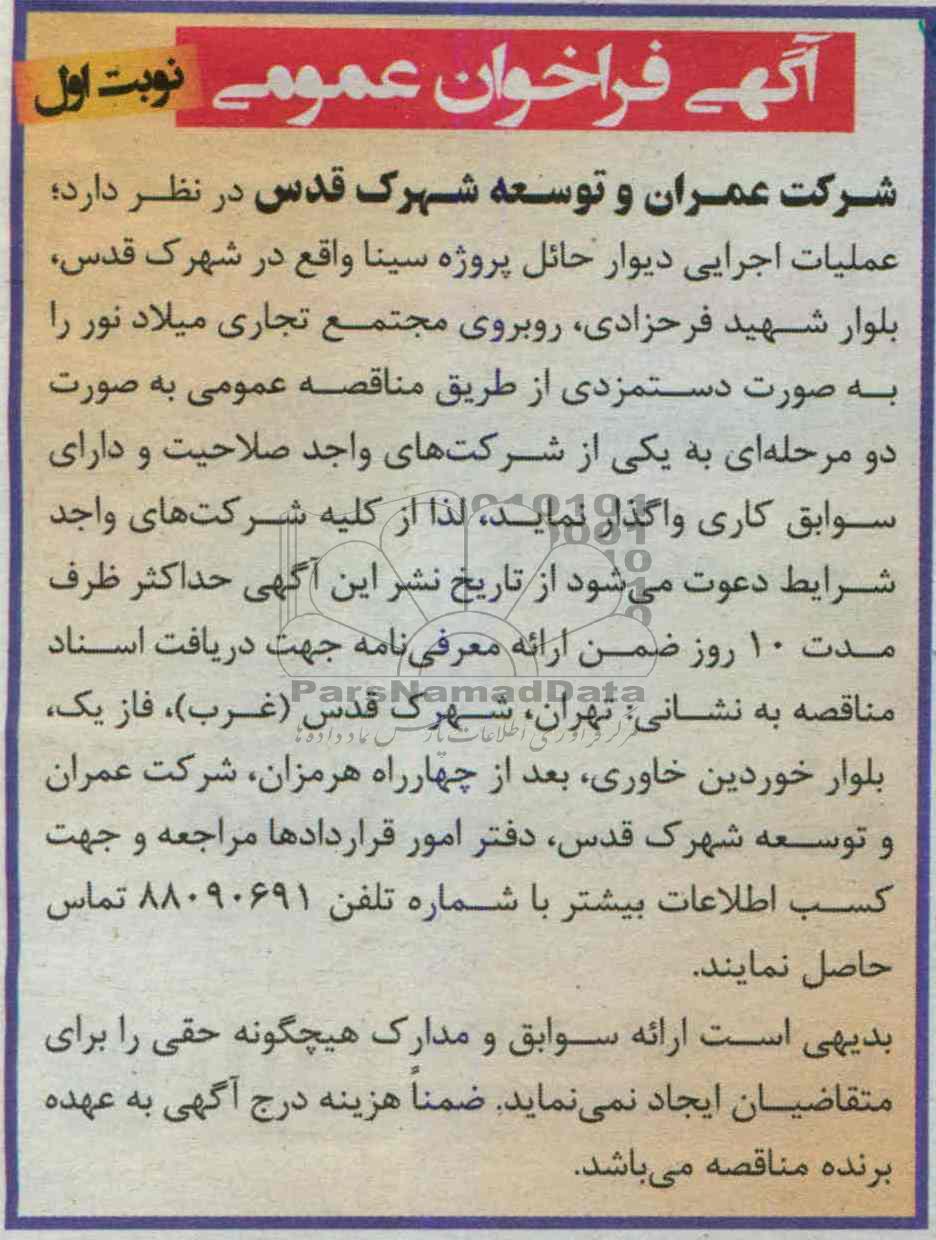 آگهی فراخوان عمومی
نوبت اول
شرکت عمران و توسعه شهرک قدس در نظر دارد؛
عملیات اجرایی دیوار حائل پروژه سینا واقع در شهرک قدس،
بلوار شهید فرحزادی، روبروی مجتمع تجاری میلاد نور را
به صورت دستمزدی از طریق مناقصه عمومی به صورت
دو مرحله‌ای به یکی از شرکت‌های واجد صلاحیت و دارای
سوابق کاری واگذار نماید، لذا از کلیه شرکت‌های واجد
شرایط دعوت می‌شود از تاریخ نشر این آگهی حداکثر ظرف
مدت ۱۰ روز ضمن ارائه معرفی‌نامه جهت دریافت اسناد
ParsNamadData
مناقصه به نشانی: تهران، شهرک قدس (غرب)، فاز یک،
مرکز فرآوری اطلاعات پارس نماد داده‌ها
بلوار خوردین خاوری، بعد از چهارراه هرمزان، شرکت عمران
و توسعه شهرک قدس، دفتر امور قراردادها مراجعه و جهت
کسب اطلاعات بیشتر با شماره تلفن ۸۸۰۹۰۶۹۱ تماس
حاصل نمایند.
بدیهی است ارائه سوابق و مدارک هیچگونه حقی را برای
متقاضیان ایجاد نمی‌نماید. ضمناً هزینه درج آگهی به عهده
برنده مناقصه می‌باشد.